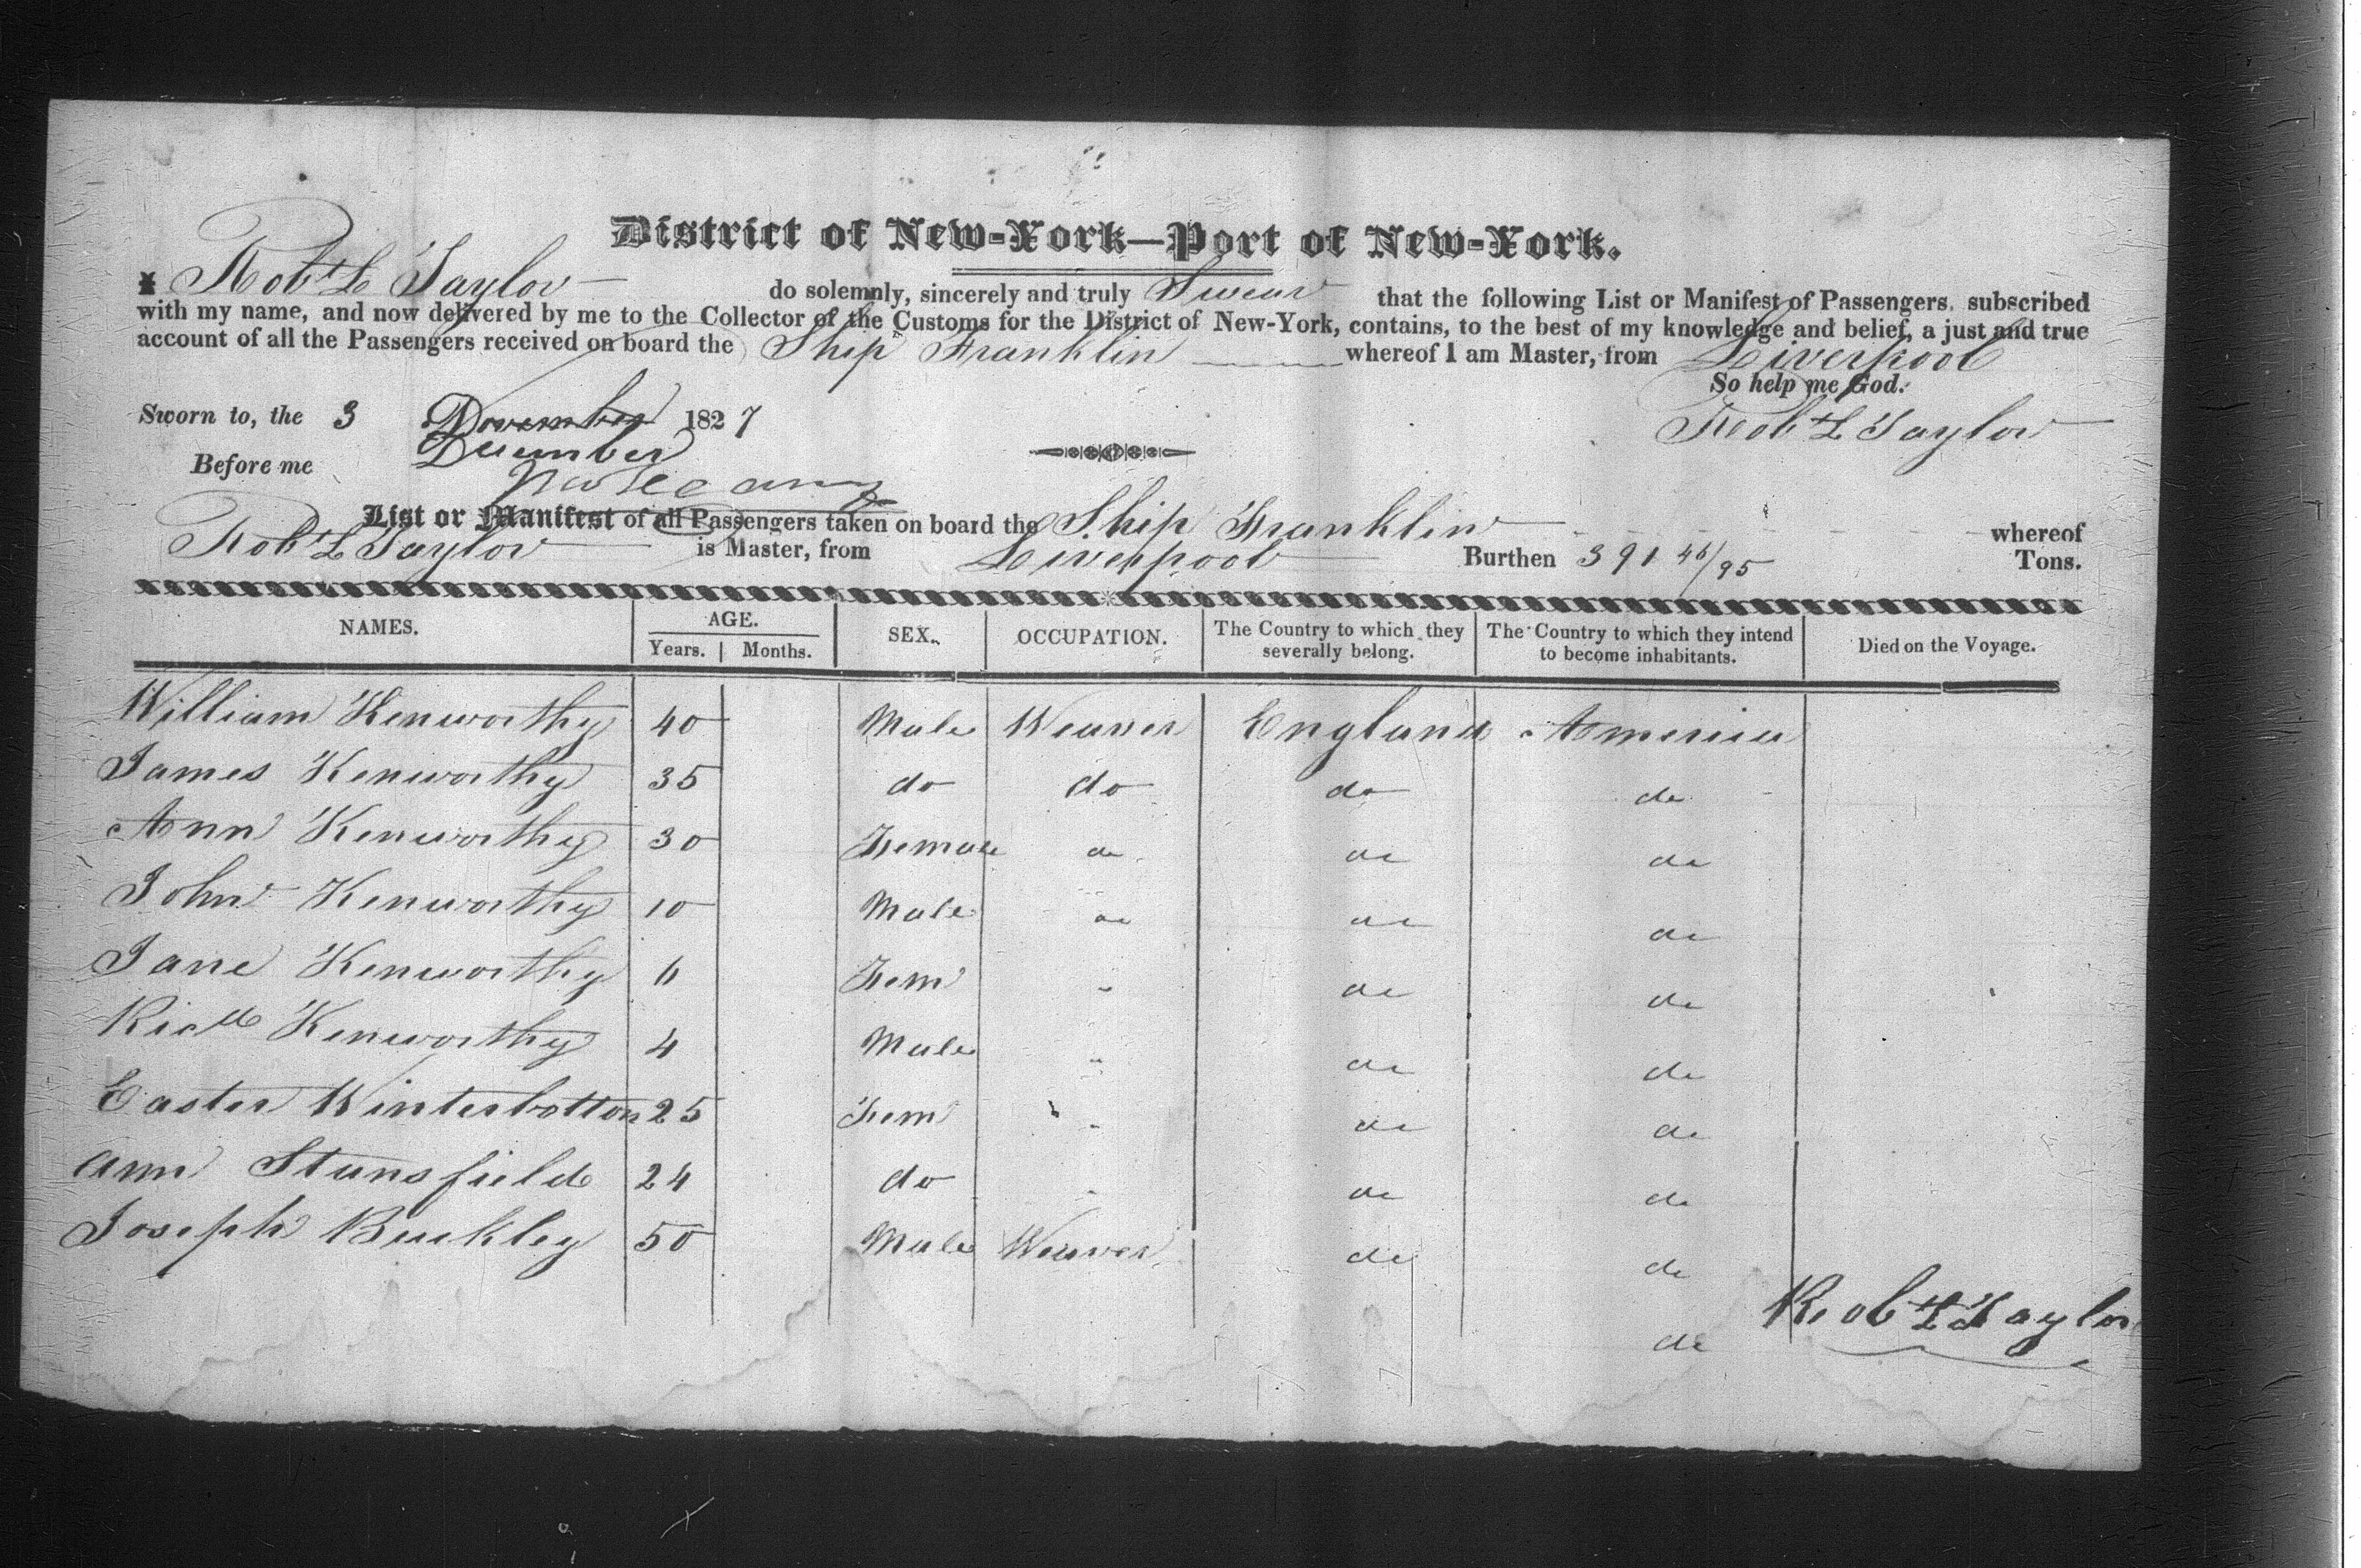 District of New-York—Port of New-York.
I Robt L Taylor do solemnly, sincerely and truly Swear that the following List or Manifest of Passengers, subscribed
with my name, and now delivered by me to the Collector of the Customs for the District of New-York, contains, to the best of my knowledge and belief, a just and true
account of all the Passengers received on board the Ship Franklin whereof I am Master, from Liverpool
So help me God.
Sworn to, the 3 November 1827 Robt L Taylor
December
Before me
List or Manifest of all Passengers taken on board the Ship Franklin whereof
Robt L Taylor is Master, from Liverpool Burthen 391 46/95 Tons.
NAMES. AGE. SEX. OCCUPATION. The Country to which they severally belong. The Country to which they intend to become inhabitants. Died on the Voyage.
Years. Months.
William Kenworthy 40 Male Weaver England America
James Kenworthy 35 do do do do
Ann Kenworthy 30 Female do do do
John Kenworthy 10 Male do do do
Jane Kenworthy 6 Fem " do do
Richd Kenworthy 4 Male " do do
Easter Winterbottom 25 Fem " do do
Ann Stansfield 24 do " do do
Joseph Buckley 50 Male Weaver do do
do
Robt L Taylor